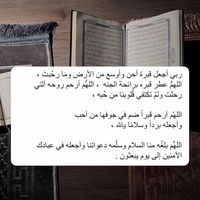 ربي أجعل قبرة أحن وأوسع من الأرض وما رحُبت ،
اللهُمَّ عطر قبره برائحة الجنه ، اللهُم أرحم روحه ألتي
رحلت ولمْ تكتفي قُلوبنا من حُبه ،
اللهُم أرحم قبراً ضم في جوفها من أحب
وأجعله برداً وسلامًا يالله ،
اللهُم بلغُه منا السلام وسلّمه دعواتنا وأجعله في عبادك
الآمنين إلى يوم يبعثون .